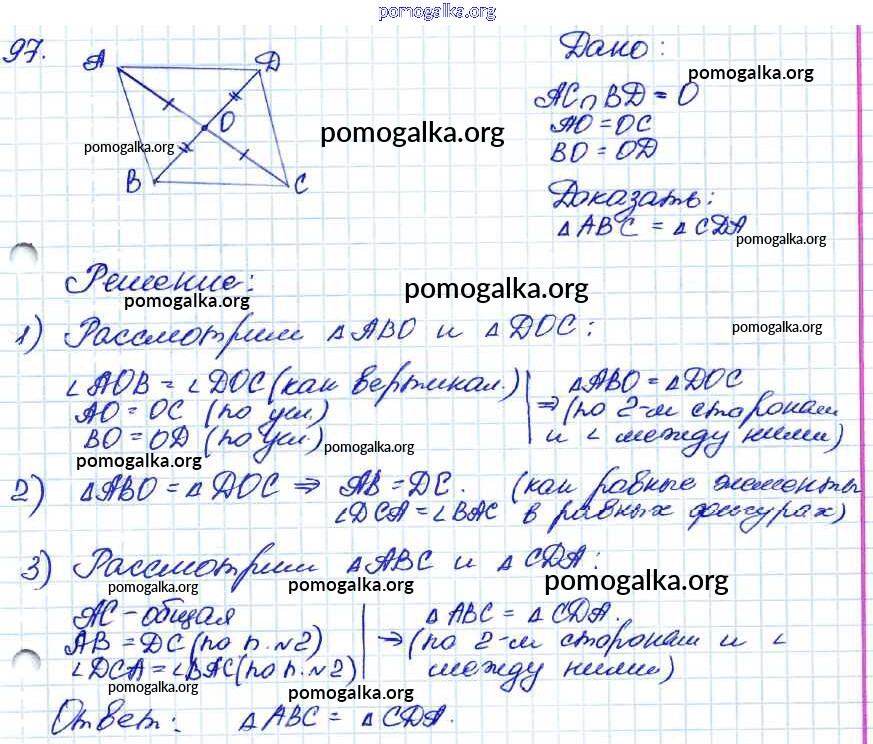 pomogalka.org
97.
A
D
O
B
C
pomogalka.org
pomogalka.org
Дано:
pomogalka.org
AC∩BD = O
AO = OC
BO = OD
Доказать:
△ABC = △CDA
pomogalka.org
Решение:
pomogalka.org
pomogalka.org
1) Рассмотрим △ABO и △DOC:
pomogalka.org
∠AOB = ∠DOC (как вертикал.)
AO = OC (по усл.)
BO = OD (по усл.)
△ABO = △DOC
⇒ (по 2-м сторонам
и ∠ между ними)
pomogalka.org
pomogalka.org
2) △ABO = △DOC ⇒ AB = DC. (как равные элементы
∠DCA = ∠BAC в равных фигурах)
3) Рассмотрим △ABC и △CDA:
pomogalka.org
pomogalka.org
pomogalka.org
AC - общая
AB = DC (по п. №2)
∠DCA = ∠BAC (по п. №2)
△ABC = △CDA.
⇒ (по 2-м сторонам и ∠
между ними)
pomogalka.org
pomogalka.org
Ответ: △ABC = △CDA.